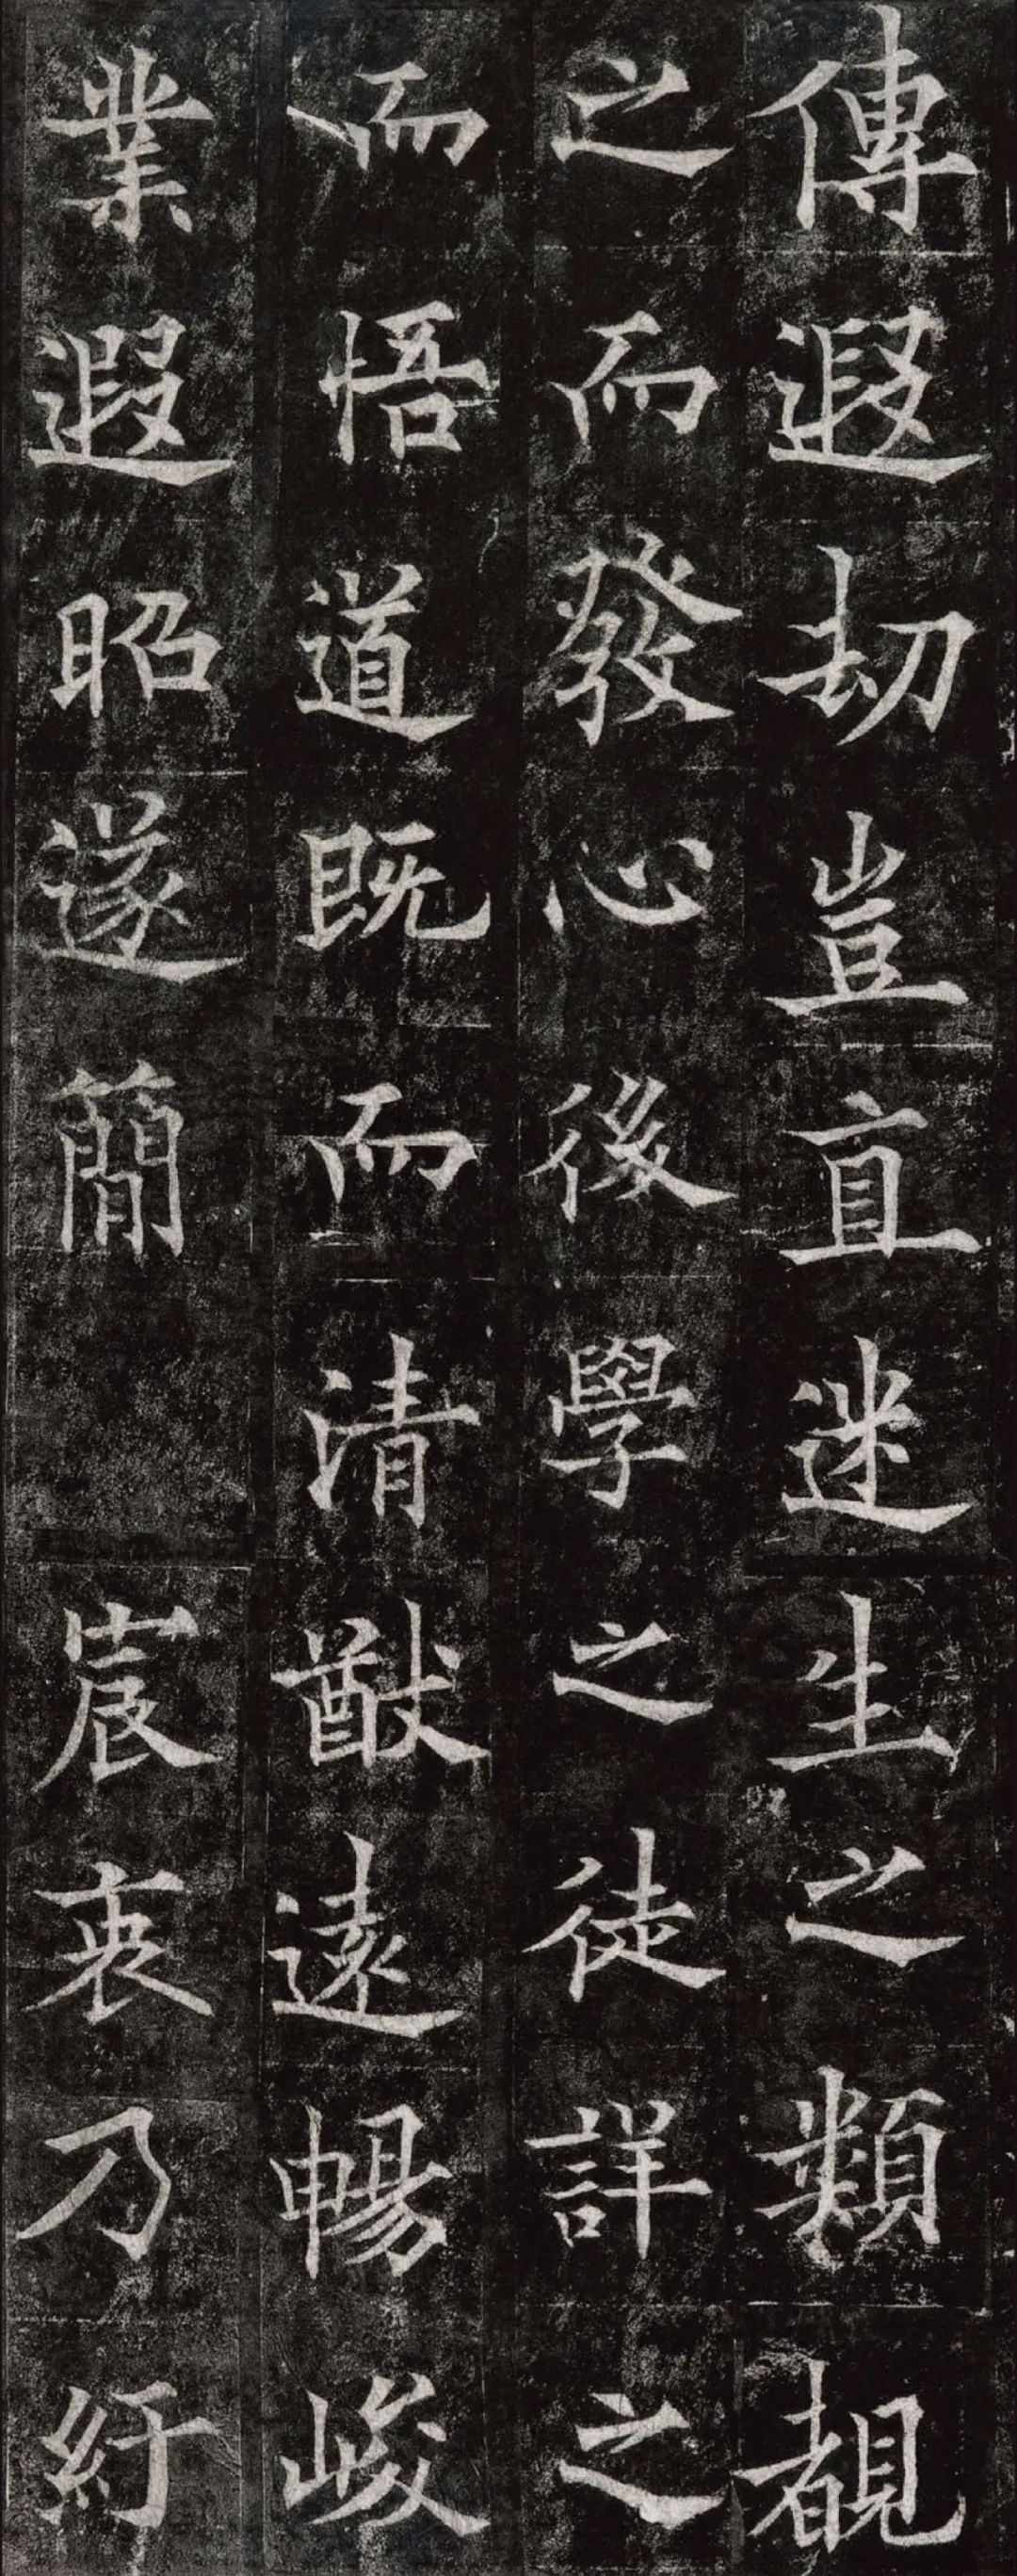 傳遐劫豈直迷生之類覩
之而發心後學之徒詳之
而悟道既而清猷遠暢峻
業遐昭遂簡宸衷乃紆